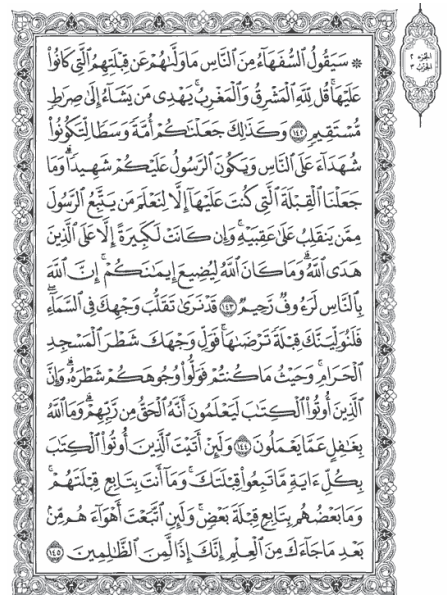 الجزء ٢
الحزب ٣
۞ سَيَقُولُ ٱلسُّفَهَآءُ مِنَ ٱلنَّاسِ مَا وَلَّىٰهُمْ عَن قِبْلَتِهِمُ ٱلَّتِى كَانُوا۟
عَلَيْهَا ۚ قُل لِّلَّهِ ٱلْمَشْرِقُ وَٱلْمَغْرِبُ ۚ يَهْدِى مَن يَشَآءُ إِلَىٰ صِرَٰطٍ
مُّسْتَقِيمٍ ۝١٤٢ وَكَذَٰلِكَ جَعَلْنَٰكُمْ أُمَّةً وَسَطًا لِّتَكُونُوا۟
شُهَدَآءَ عَلَى ٱلنَّاسِ وَيَكُونَ ٱلرَّسُولُ عَلَيْكُمْ شَهِيدًا ۗ وَمَا
جَعَلْنَا ٱلْقِبْلَةَ ٱلَّتِى كُنتَ عَلَيْهَآ إِلَّا لِنَعْلَمَ مَن يَتَّبِعُ ٱلرَّسُولَ
مِمَّن يَنقَلِبُ عَلَىٰ عَقِبَيْهِ ۚ وَإِن كَانَتْ لَكَبِيرَةً إِلَّا عَلَى ٱلَّذِينَ
هَدَى ٱللَّهُ ۗ وَمَا كَانَ ٱللَّهُ لِيُضِيعَ إِيمَٰنَكُمْ ۚ إِنَّ ٱللَّهَ
بِٱلنَّاسِ لَرَءُوفٌ رَّحِيمٌ ۝١٤٣ قَدْ نَرَىٰ تَقَلُّبَ وَجْهِكَ فِى ٱلسَّمَآءِ ۖ
فَلَنُوَلِّيَنَّكَ قِبْلَةً تَرْضَىٰهَا ۚ فَوَلِّ وَجْهَكَ شَطْرَ ٱلْمَسْجِدِ
ٱلْحَرَامِ ۚ وَحَيْثُ مَا كُنتُمْ فَوَلُّوا۟ وُجُوهَكُمْ شَطْرَهُۥ ۗ وَإِنَّ
ٱلَّذِينَ أُوتُوا۟ ٱلْكِتَٰبَ لَيَعْلَمُونَ أَنَّهُ ٱلْحَقُّ مِن رَّبِّهِمْ ۗ وَمَا ٱللَّهُ
بِغَٰفِلٍ عَمَّا يَعْمَلُونَ ۝١٤٤ وَلَئِنْ أَتَيْتَ ٱلَّذِينَ أُوتُوا۟ ٱلْكِتَٰبَ
بِكُلِّ ءَايَةٍ مَّا تَبِعُوا۟ قِبْلَتَكَ ۚ وَمَآ أَنتَ بِتَابِعٍ قِبْلَتَهُمْ ۚ
وَمَا بَعْضُهُم بِتَابِعٍ قِبْلَةَ بَعْضٍ ۚ وَلَئِنِ ٱتَّبَعْتَ أَهْوَآءَهُم مِّنۢ
بَعْدِ مَا جَآءَكَ مِنَ ٱلْعِلْمِ ۙ إِنَّكَ إِذًا لَّمِنَ ٱلظَّٰلِمِينَ ۝١٤٥